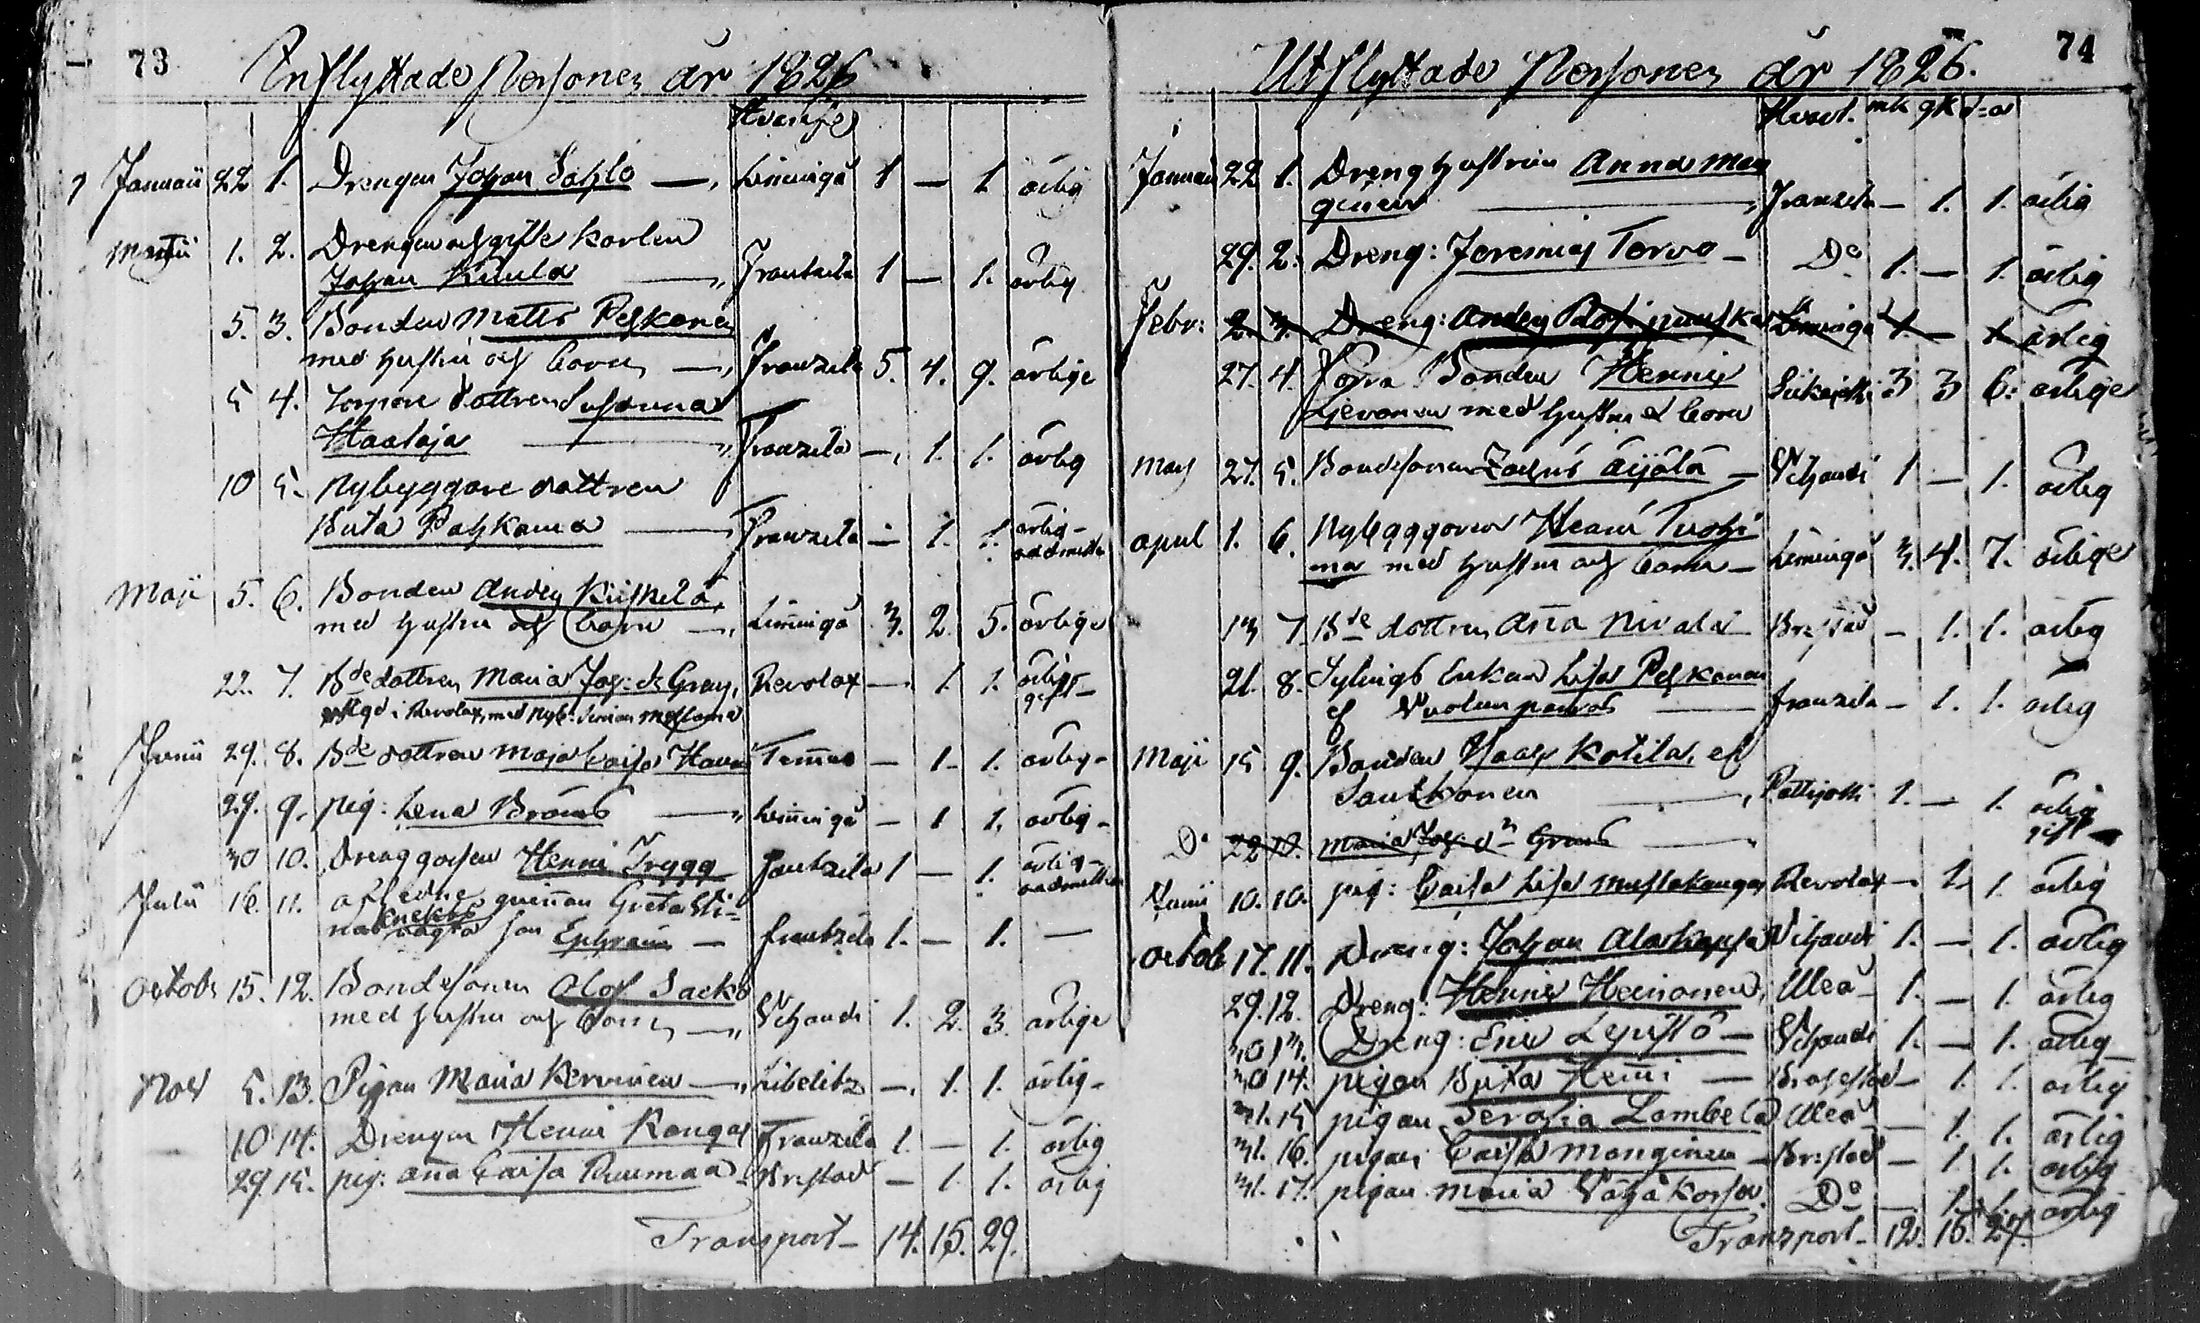 73
Inflyttade Personer år 1826
Hvarifrå
Januarii 22 1. Drengen Johan Sahlo — Limingå 1 — 1. ärlig
Martii 1. 2. Drengen och gifte karlen
Johan Kuula — Frantsila 1 — 1. ärlig
5. 3. Bonden Matts Peskonen
med hustru och barn — Franzila 5. 4. 9. ärlige
5 4. Torpare dottren Susanna
Haataja — Franzila — 1. 1. ärlig
10 5. Nybyggare dottren
Brita Pahkama — Franzila — 1. 1. ärlig - oadmitt
Maji 5. 6. Bonden Anders Kiiskilä,
med hustru och barn — Limingå 3. 2. 5. ärlige
22. 7. Bde dottren Maria Joh: dr Grau, Revolax — 1 1. ärlig gift -
i Revolax, med Nyb:
Junii 29. 8. Bde dottren Maja Caisa Temmes — 1. 1. ärlig -
29. 9. pig: Lena Bröms — Limingå — 1 1. ärlig -
30 10. Drenggossen Henric Trygg Frantzila 1 — 1. ärlig - oadmitt
Julii 16. 11. aflidne qvinnan Greta
son Ephraim — Frantzila 1. — 1. —
Octobr 15. 12. Bondesonen Olof Sacko
med hustru och barn — Vihandi 1. 2. 3. ärlige
Nov 5. 13. Pigan Maria Kervinen — Libelitz — 1. 1. ärlig -
10 14. Drengen Henric Kangas Franzila 1. — 1. ärlig
29. 15. pig: Aña Caisa Ruumaa - Brestad — 1 1. ärlig
Transport - 14. 15. 29.
74
Utflyttade Personer år 1826.
Hvart. mk qk S:a
Januarii 22 1. Dreng hustrun Anna Man
ginen — Franzila — 1. 1. ärlig
29. 2. Dreng: Jeremias Torvo - Do 1. — 1. ärlig
Febr: 2. 3. Dreng: Anders Limingå 1 — 1 ärlig
27. 4. Bonden Henric
Lievonen med hustru o barn Siikajocki 3 3 6. ärlige
Mars 27. 5. Bondesonen Zachris Äijälä — Vihandi 1 — 1. ärlig
April 1. 6. Nybyggaren Henric Tuohi
maa med hustru och barn — Limingå 3. 4. 7. ärlige
13 7. Bde dottren Aña Nivala Brestad — 1. 1. ärlig
21. 8. Sytnings Enkan Lisa Peskonen
af Vuolunparras — Franzila — 1. 1. ärlig
Maji 15 9. Bonden Isaac Kotila, el
Sautkonen — Pattijocki 1. — 1. ärlig gift
Do 22 10. Maria Joh: dr Graus —
Junii 10. 10. pig: Caisa Lisa Mustakangas Revolax — 1. 1. ärlig
Octob 17. 11. Dreng: Johan Alaskapsa Vihandi 1. — 1. ärlig
29. 12. Dreng: Henric Heinonen, Uleå 1. — 1. ärlig
30 13. Dreng: Eric Lepistö — Vihandi 1. — 1. ärlig
30 14. pigan Brita Heiñi — Brahestad — 1. 1. ärlig
31. 15 pigan Serafia Lambela Uleå — 1. 1. ärlig
31. 16. pigan Caisa Manginen — Brestad — 1. 1. ärlig
31. 17. pigan Maria Do — 1. 1. ärlig
Transport - 12. 15. 27.